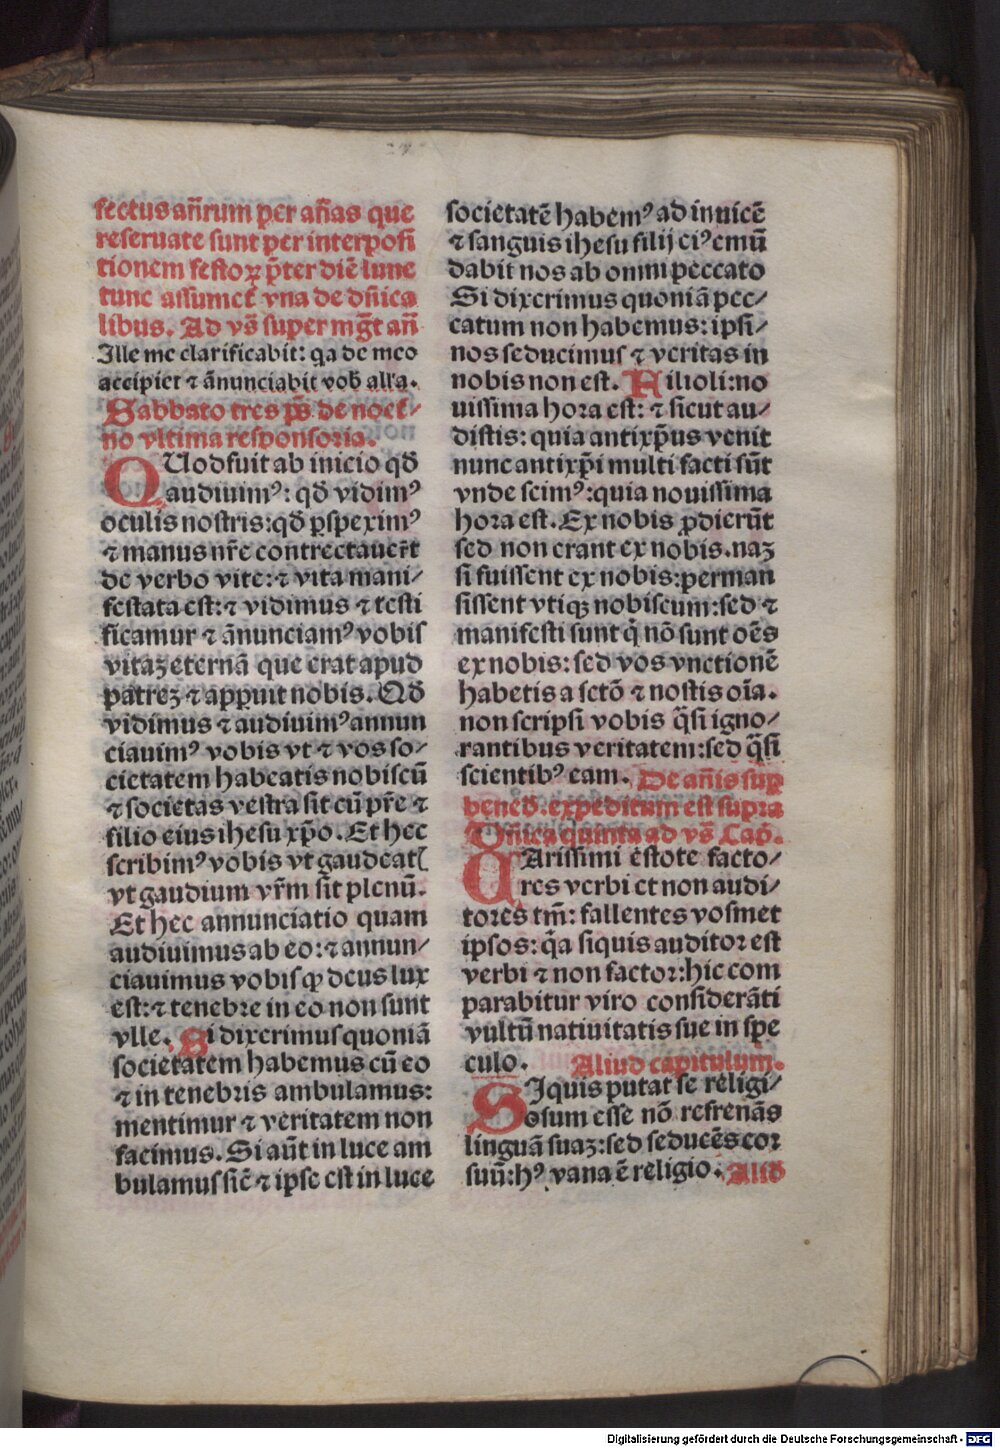 fectus añrum per añas que
reseruate sunt per interposi
tionem festoꝝ p̄ter diē lune
tunc assumēt vna de dñica
libus. Ad vs̄ super mḡt añ
Ille me clarificabit: qa de meo
accipiet ⁊ ānunciabit vob̄ alľa.
Sabbato tres ps̄. de noct̄⸗
no vltima responsoria.
QUod fuit ab inicio qđ
audiuimꝰ: qđ vidimꝰ
oculis nostris: qđ ꝑspeximꝰ
⁊ manus nr̄e contrectauer̄t
de verbo vite: ⁊ vita mani⸗
festata est: ⁊ vidimus ⁊ testi
ficamur ⁊ ānunciamꝰ vobis
vitaꝫ eternā que erat apud
patreꝫ ⁊ apꝑuit nobis. Qđ
vidimus ⁊ audiuimꝰ annun
ciauimꝰ vobis vt ⁊ vos so⸗
cietatem habeatis nobiscū
⁊ societas vestra sit cū pr̄e ⁊
filio eius ihesu xp̄o. Et hec
scribimꝰ vobis vt gaudeatꝭ
vt gaudium vr̄m sit plenū.
Et hec annunciatio quam
audiuimus ab eo: ⁊ annun⸗
ciauimus vobis ꝙ deus lux
est: ⁊ tenebre in eo non sunt
vlle. Si dixerimus quoniā
societatem habemus cū eo
⁊ in tenebris ambulamus:
mentimur ⁊ veritatem non
facimus. Si aūt in luce am
bulamus sic̄ ⁊ ipse est in luce
societatē habemꝰ ad inuicē
⁊ sanguis ihesu filij eiꝰ emū
dabit nos ab omni peccato
Si dixerimus quoniā pec⸗
catum non habemus: ipsi⸗
nos seducimus ⁊ veritas in
nobis non est. Filioli: no
uissima hora est: ⁊ sicut au⸗
distis: quia antixp̄us venit
nunc antixp̄i multi facti sūt
vnde scimꝰ: quia nouissima
hora est. Ex nobis ꝓdierūt
sed non erant ex nobis. naꝫ
si fuissent ex nobis: perman
sissent vtiqꝫ nobiscum: sed ⁊
manifesti sunt q̄ nō sunt oēs
ex nobis: sed vos vnctionē
habetis a sctō ⁊ nostis oīa.
non scripsi vobis q̄si igno⸗
rantibus veritatem: sed q̄si
scientibꝰ eam. De añis suꝑ
bened̄. expeditum est supra
Dñica quinta ad vs̄ Cap̄.
CArissimi estote facto⸗
res verbi et non audi⸗
tores tm̄: fallentes vosmet
ipsos: q̄a siquis auditor est
verbi ⁊ non factor: hic com
parabitur viro considerāti
vultū natiuitatis sue in spe
culo. Aliud capitulum.
SIquis putat se religi⸗
osum esse nō refrenās
linguā suaꝫ: sed seducēs cor
suū: hꝰ vana ē religio. Aliđ
Digitalisierung gefördert durch die Deutsche Forschungsgemeinschaft - DFG